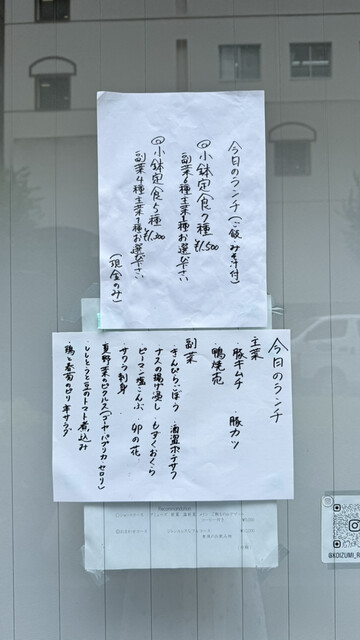 今日のランチ(ご飯 みそ汁付)
◎小鉢定食7種 ¥1,500
副菜6種主菜1種お選び下さい
◎小鉢定食5種 ¥1,300
副菜4種主菜1種お選び下さい
(現金のみ)
今日のランチ
主菜
・豚キムチ ・豚カツ
・鴨焼売
副菜
・きんぴらごぼう ・酒盗ポテサラ
・ナスの揚げ浸し ・もずくおくら
・ピーマン塩こんぶ ・卯の花
・サワラ刺身
・夏野菜のピクルス(ゴーヤ・パプリカ・セロリ)
・ししとうと豆のトマト煮込み
・鶏と春菊のピリ辛サラダ